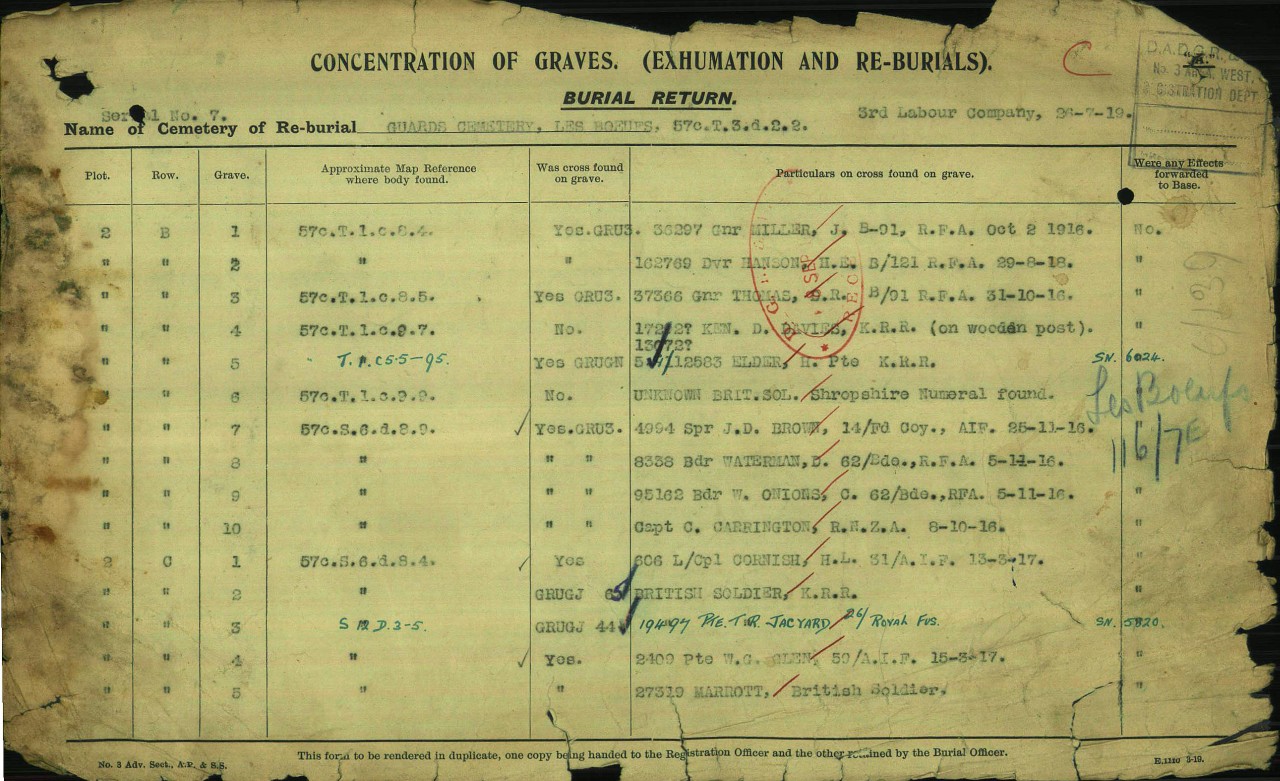 CONCENTRATION OF GRAVES. (EXHUMATION AND RE-BURIALS).
C
"A".
D.A.D.G.R.
No. 3 AREA, WEST.
REGISTRATION DEPT
BURIAL RETURN.
Serial No. 7.
3rd Labour Company, 26-7-19.
Name of Cemetery of Re-burial GUARDS CEMETERY, LES BOEUFS, 57c.T.3.d.2.2.
Plot. Row. Grave. Approximate Map Reference where body found. Was cross found on grave. Particulars on cross found on grave. Were any Effects forwarded to Base.
2 B 1 57c.T.1.c.8.4. Yes.GRU3. 36297 Gnr MILLER, J. B-91, R.F.A. Oct 2 1916. No.
" " 2 " " 162769 Dvr HANSON, H.E. B/121 R.F.A. 29-8-18. "
" " 3 57c.T.1.c.8.5. Yes GRU3. 37366 Gnr THOMAS, D.R. B/91 R.F.A. 31-10-16. "
" " 4 57c.T.1.c.9.7. No. 17292? KEN. D. DAVIES, K.R.R. (on wooden post). "
13672?
" " 5 Yes GRUGN 112583 ELDER, H. Pte K.R.R. SN. 6024.
" " 6 57c.T.1.c.9.9. No. UNKNOWN BRIT.SOL. Shropshire Numeral found.
Les Boeufs
" " 7 57c.S.6.d.8.9. Yes.GRU3. 4994 Spr J.D. BROWN, 14/Fd Coy., AIF. 25-11-16. "
116/7E
" " 8 " " " 8338 Bdr WATERMAN,D. 62/Bde.,R.F.A. 5-11-16.
" " 9 " " " 95162 Bdr W. ONIONS, C. 62/Bde.,RFA. 5-11-16. "
" " 10 " " " Capt C. CARRINGTON, R.N.Z.A. 8-10-16. "
2 C 1 57c.S.6.d.8.4. Yes 606 L/Cpl CORNISH, H.L. 31/A.I.F. 13-3-17. "
" " 2 " GRUGJ BRITISH SOLDIER, K.R.R. "
" " 3 GRUGJ 44 19497 PTE. T.R. JACYARD 26/ ROYAL FUS. SN. 5820.
" " 4 " Yes. 2409 Pte W.G. GLEN, 59/A.I.F. 15-3-17. "
" " 5 " " 27319 MARROTT, British Soldier. "
This form to be rendered in duplicate, one copy being handed to the Registration Officer and the other retained by the Burial Officer.
No. 3 Adv. Sect., A.P. & S.S.
E.1110 3-19.